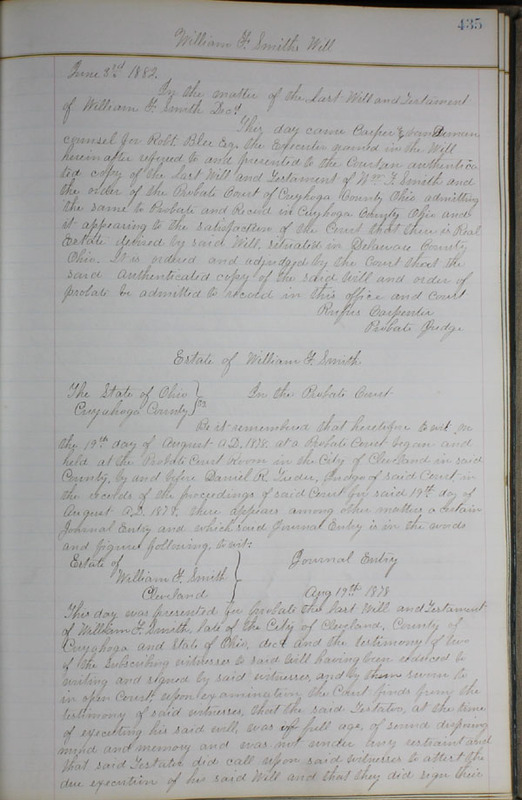 435
William F. Smith's Will
June 3rd 1882.
In the matter of the Last Will and Testament
of William F. Smith Decd
This day came Carper & Van Deman
counsel for Robt. Blee Esq. the Executor named in the Will
hereinafter refered to and presented to the Court an authentica
ted copy of the Last Will and Testament of Wm F. Smith and
the order of the Probate Court of Cuyhoga County Ohio admitting
the same to Probate and Record in Cuyhoga County Ohio and
it appearing to the satisfaction of the Court that there is Real
Estate devised by said Will, situated in Delaware County
Ohio. It is ordered and adjudged by the Court that the
said authenticated copy of the said Will and order of
probate be admitted to record in this office and Court
Rufus Carpenter
Probate Judge
Estate of William F. Smith
The State of Ohio } In the Probate Court
Cuyahoga County } ss
Be it remembered that heretofore to wit on
the 19th day of August A.D. 1878. at a Probate Court began and
held at the Probate Court Room in the City of Cleveland in said
County, by and before Daniel R. Tilden, Judge of said Court in
the records of the proceedings of said Court for said 19th day of
August A.D. 1878, there appears among other matters a certain
Journal Entry and which said Journal Entry is in the words
and figures following, to wit:
Estate of } Journal Entry
William F. Smith
Cleveland } Aug 19th 1878
This day was presented for probate the last Will and Testament
of William F. Smith, late of the City of Cleveland, County of
Cuyahoga and State of Ohio, decd and the testimony of two
of the Subscribing witnesses to said Will having been reduced to
writing and signed by said witnesses, and by them sworn to
in open Court, upon examination, the Court finds from the
testimony of said witnesses, that the said Testator, at the time
of executing his said will, was of full age, of sound disposing
mind and memory and was not under any restraint and
that said Testator did call upon said witnesses to attest the
due execution of his said Will and that they did sign their